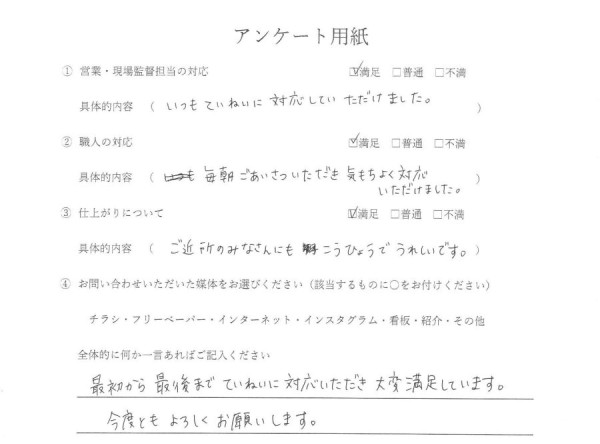 アンケート用紙
① 営業・現場監督担当の対応 ☑満足 □普通 □不満
具体的内容 （ いつもていねいに対応していただけました。 ）
② 職人の対応 ☑満足 □普通 □不満
具体的内容 （ いつも 毎朝ごあいさついただき気もちよく対応
いただけました。 ）
③ 仕上がりについて ☑満足 □普通 □不満
具体的内容 （ ご近所のみなさんにも こうひょうでうれしいです。 ）
④ お問い合わせいただいた媒体をお選びください（該当するものに○をお付けください）
チラシ・フリーペーパー・インターネット・インスタグラム・看板・紹介・その他
全体的に何か一言あればご記入ください
最初から最後までていねいに対応いただき大変満足しています。
今度ともよろしくお願いします。